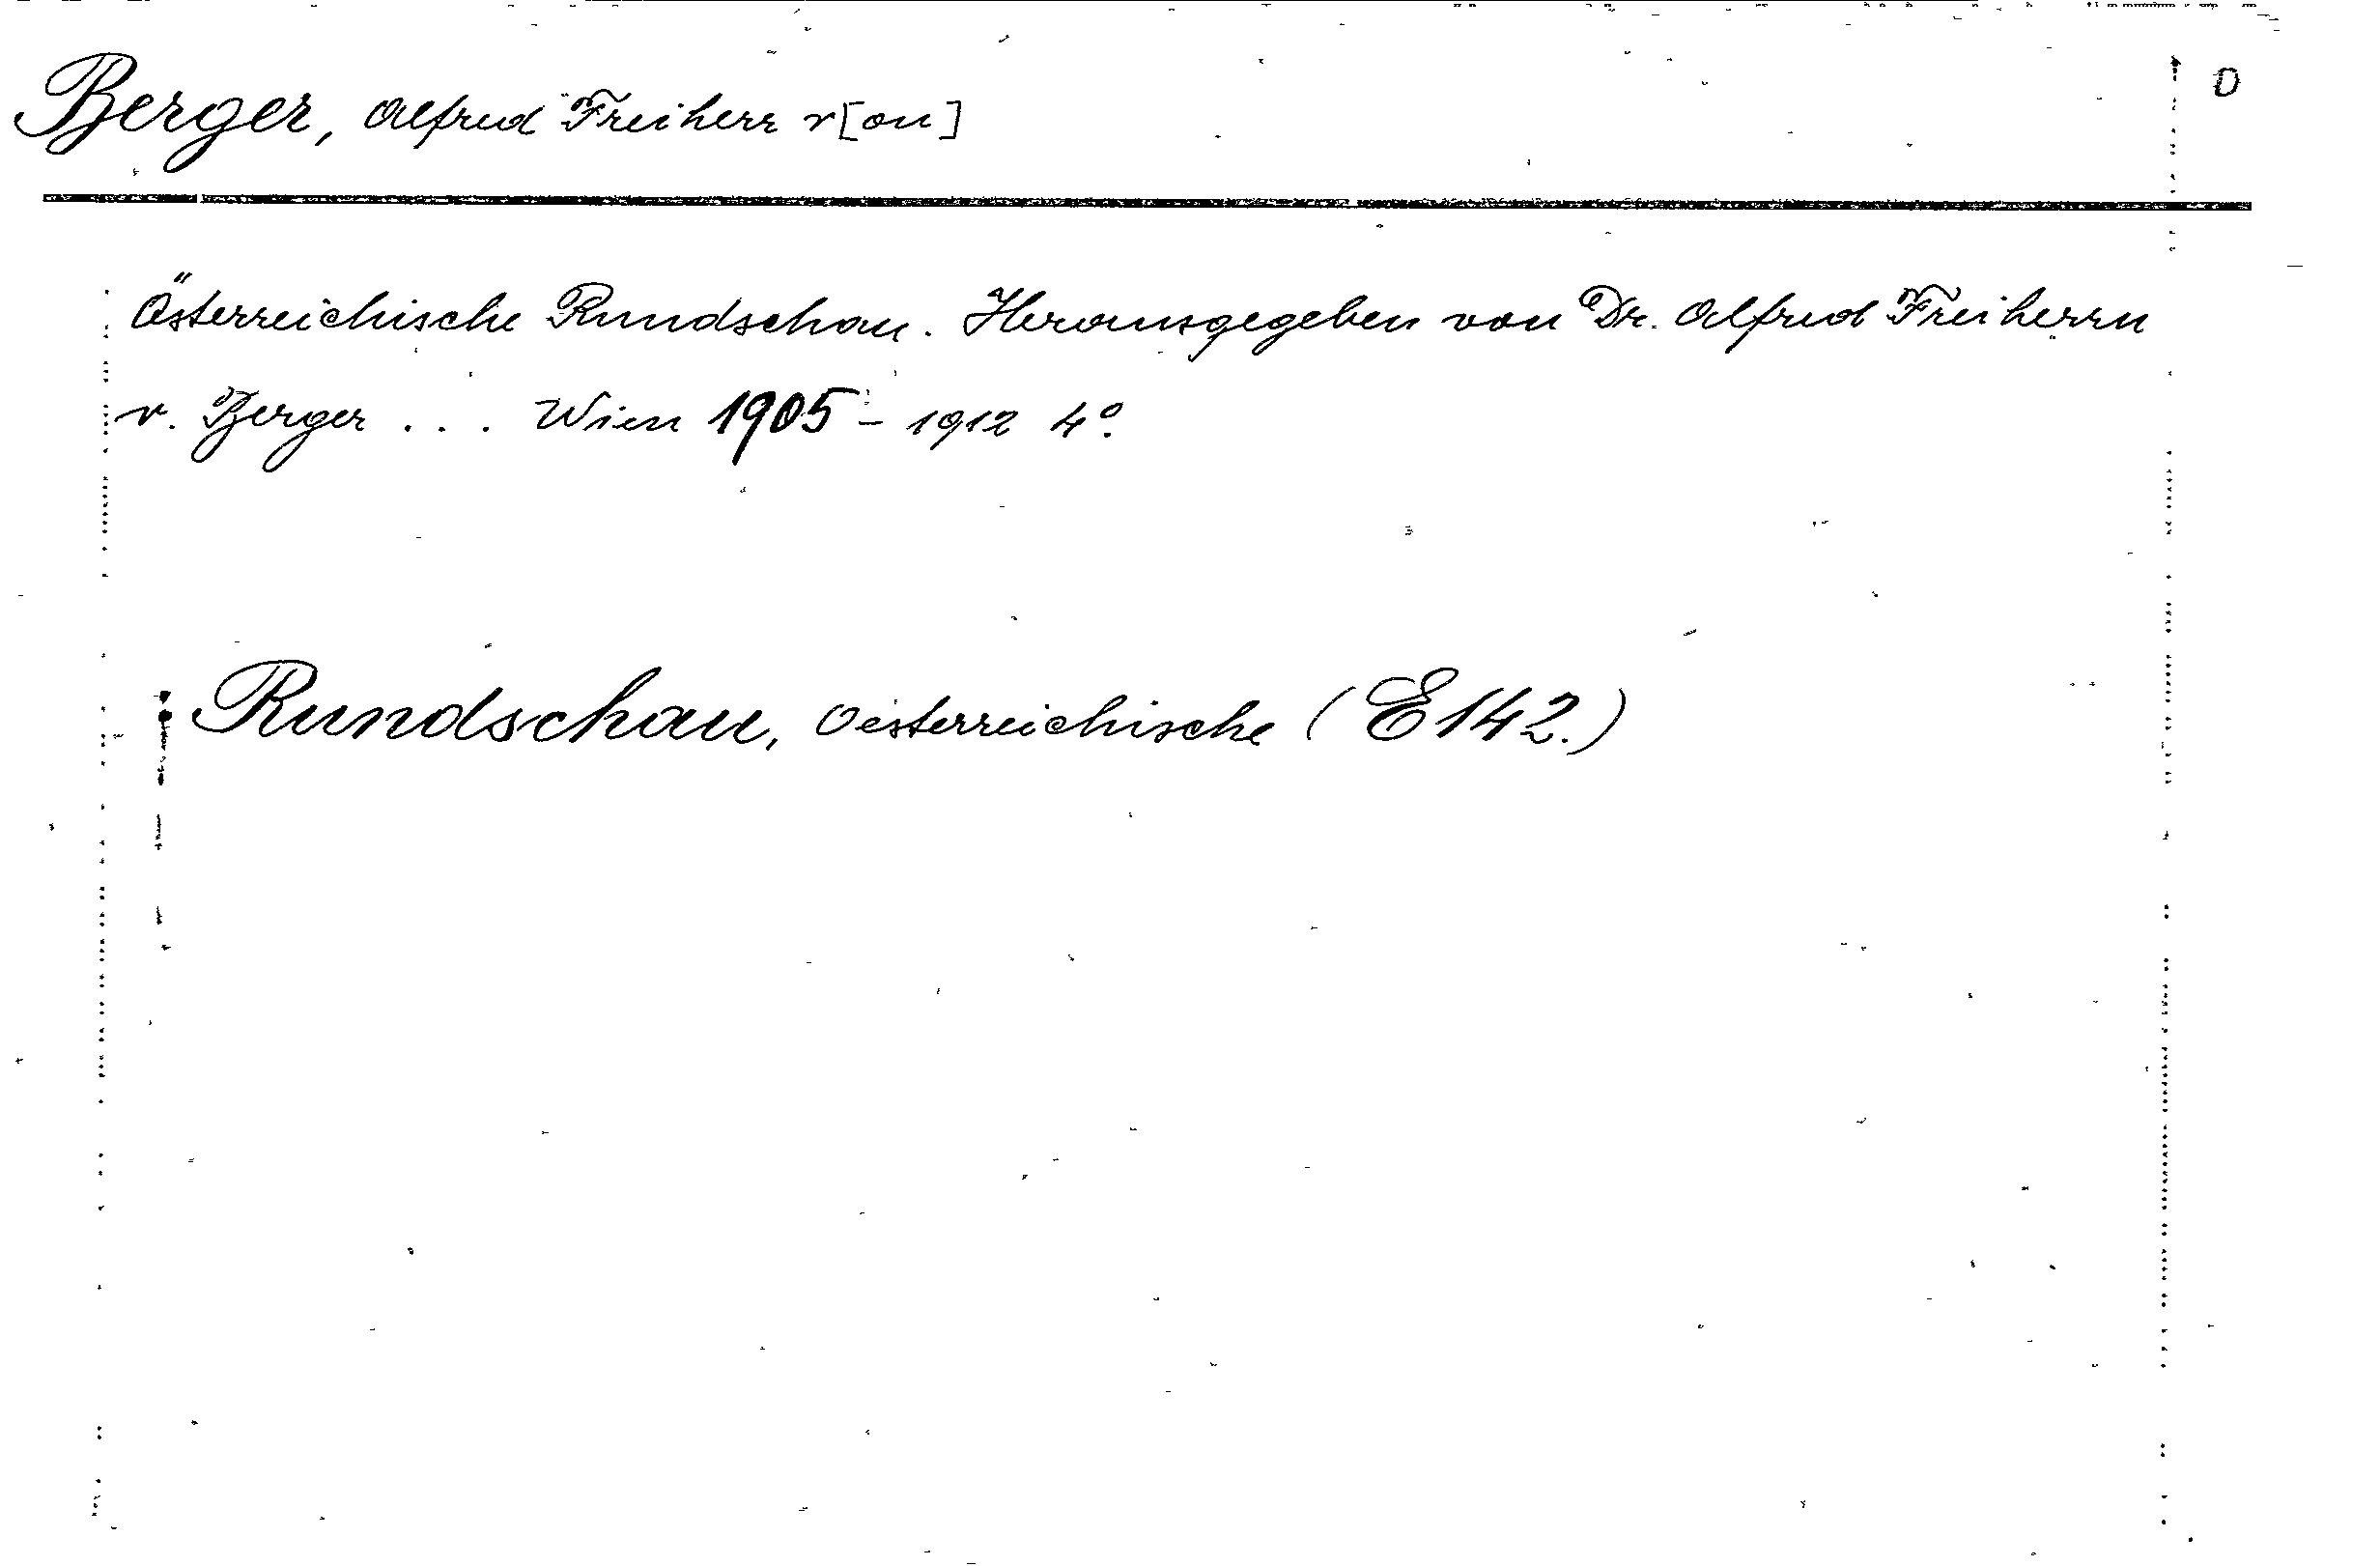 Berger, Alfred Freiherr v[on]
D
Österreichische Rundschau. Herausgegeben von Dr. Alfred Freiherrn
v. Berger ... Wien 1905 - 1912 4°.
: Rundschau, Oesterreichische (E 142.)